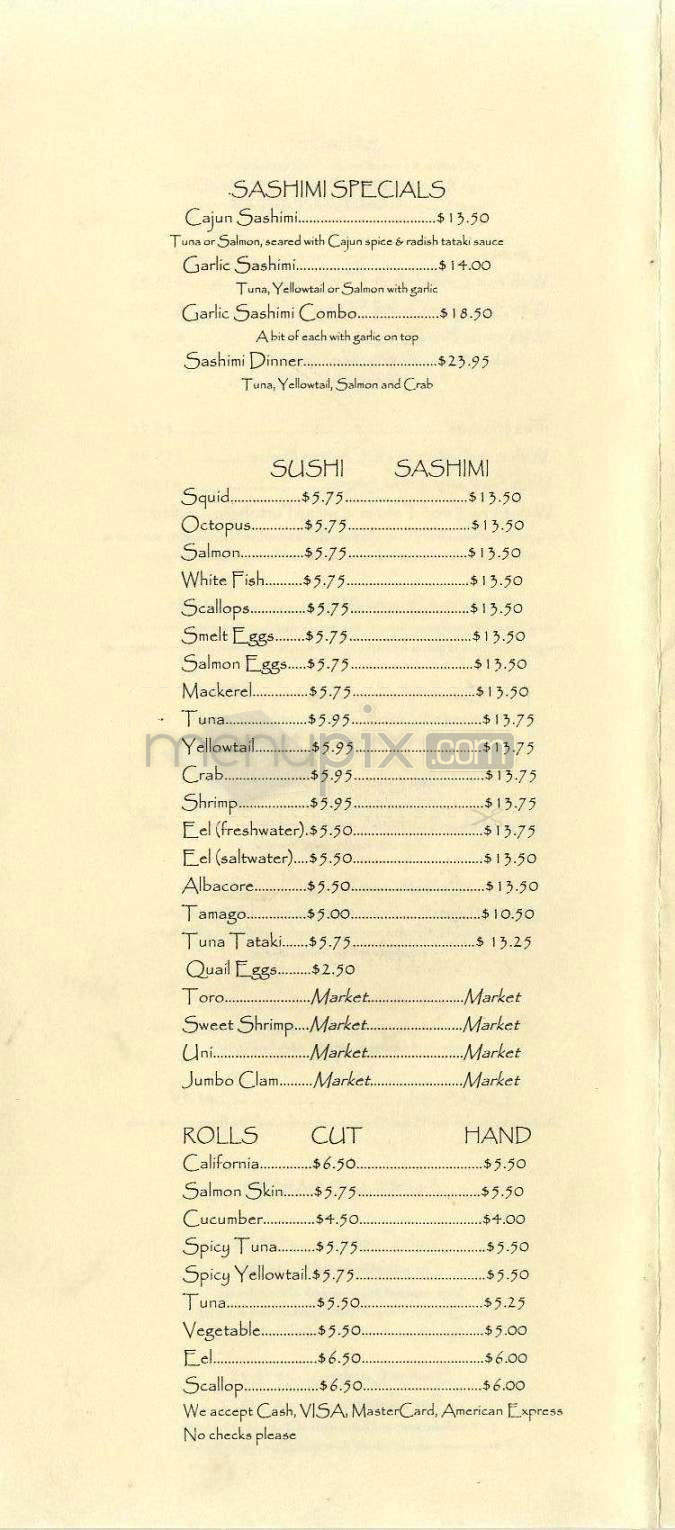 SASHIMI SPECIALS
Cajun Sashimi.....................................$13.50
Tuna or Salmon, seared with Cajun spice & radish tataki sauce
Garlic Sashimi......................................$14.00
Tuna, Yellowtail or Salmon with garlic
Garlic Sashimi Combo......................$18.50
A bit of each with garlic on top
Sashimi Dinner....................................$23.95
Tuna, Yellowtail, Salmon and Crab
SUSHI SASHIMI
Squid...................$5.75.................................$13.50
Octopus..............$5.75.................................$13.50
Salmon.................$5.75................................$13.50
White Fish..........$5.75.................................$13.50
Scallops...............$5.75................................$13.50
Smelt Eggs........$5.75.................................$13.50
Salmon Eggs.....$5.75.................................$13.50
Mackerel...............$5.75.................................$13.50
Tuna......................$5.95..................................$13.75
Yellowtail...............$5.95..................................$13.75
Crab.......................$5.95...................................$13.75
Shrimp...................$5.95...................................$13.75
Eel (freshwater).$5.50...................................$13.75
Eel (saltwater)....$5.50...................................$13.50
Albacore..............$5.50....................................$13.50
Tamago................$5.00...................................$10.50
Tuna Tataki.......$5.75.................................$ 13.25
Quail Eggs.........$2.50
Toro.......................Market..........................Market
Sweet Shrimp....Market..........................Market
Uni..........................Market..........................Market
Jumbo Clam.........Market.........................Market
menupix.com
ROLLS CUT HAND
California..............$6.50..................................$5.50
Salmon Skin........$5.75.................................$5.50
Cucumber..............$4.50.................................$4.00
Spicy Tuna..........$5.75..................................$5.50
Spicy Yellowtail.$5.75...................................$5.50
Tuna........................$5.50.................................$5.25
Vegetable...............$5.50.................................$5.00
Eel............................$6.50.................................$6.00
Scallop....................$6.50................................$6.00
We accept Cash, VISA, MasterCard, American Express
No checks please